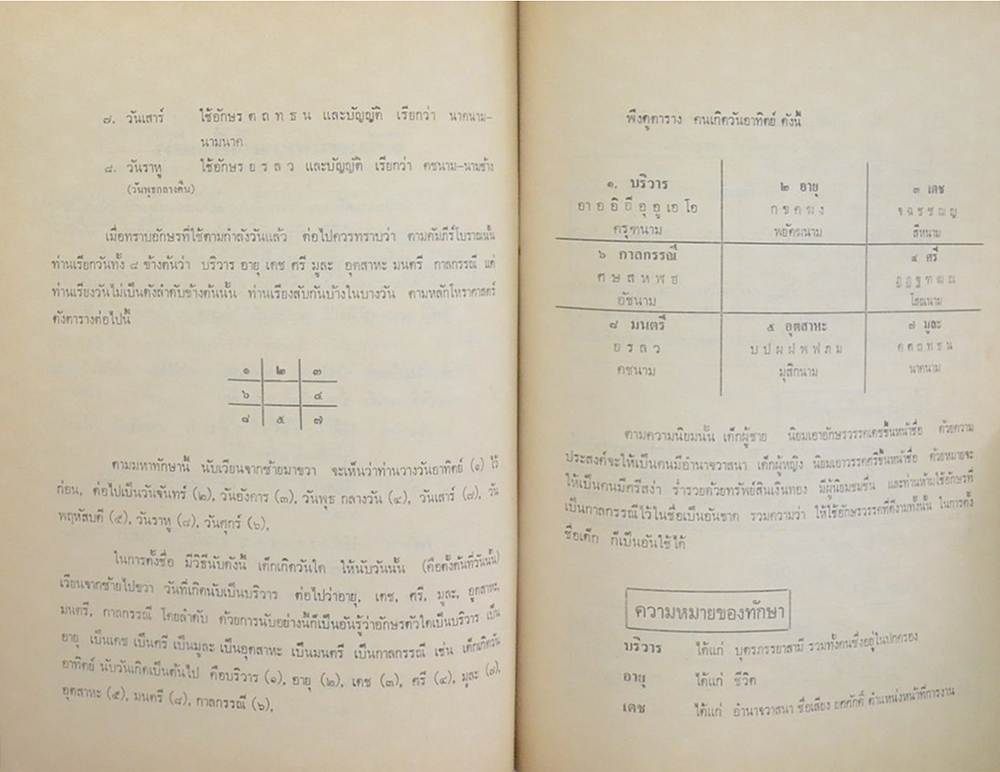 ๗. วันเสาร์ ใช้อักษร ด ถ ท ธ น และบัญญัติ เรียกว่า นาคนาม-
นามนาค
๘. วันราหู ใช้อักษร ย ร ล ว และบัญญัติ เรียกว่า คชนาม-นามช้าง
(วันพุธกลางคืน)
เมื่อทราบอักษรที่ใช้ตามกำลังวันแล้ว ต่อไปควรทราบว่า ตามคัมภีร์โบราณนั้น
ท่านเรียกวันทั้ง ๘ ข้างต้นว่า บริวาร อายุ เดช ศรี มูละ อุตสาหะ มนตรี กาลกรรณี แต่
ท่านเรียงวันไม่เป็นดังลำดับข้างต้นนั้น ท่านเรียงสับกันบ้างในบางวัน ตามหลักโหราศาสตร์
ดังตารางต่อไปนี้
๑ ๒ ๓
๖ ๔
๘ ๕ ๗
ตามมหาทักษานี้ นับเวียนจากซ้ายมาขวา จะเห็นว่าท่านวางวันอาทิตย์ (๑) ไว้
ก่อน, ต่อไปเป็นวันจันทร์ (๒), วันอังคาร (๓), วันพุธ กลางวัน (๔), วันเสาร์ (๗), วัน
พฤหัสบดี (๕), วันราหู (๘), วันศุกร์ (๖),
ในการตั้งชื่อ มีวิธีนับดังนี้ เด็กเกิดวันใด ให้นับวันนั้น (คือตั้งต้นที่วันนั้น)
เวียนจากซ้ายไปขวา วันที่เกิดนับเป็นบริวาร ต่อไปว่าอายุ, เดช, ศรี, มูละ, อุตสาหะ,
มนตรี, กาลกรรณี โดยลำดับ ด้วยการนับอย่างนี้ก็เป็นอันรู้ว่าอักษรตัวใดเป็นบริวาร เป็น
อายุ เป็นเดช เป็นศรี เป็นมูละ เป็นอุตสาหะ เป็นมนตรี เป็นกาลกรรณี เช่น เด็กเกิดวัน
อาทิตย์ นับวันเกิดเป็นต้นไป คือบริวาร (๑), อายุ (๒), เดช (๓), ศรี (๔), มูละ (๗),
อุตสาหะ (๕), มนตรี (๘), กาลกรรณี (๖),
พึงดูตาราง คนเกิดวันอาทิตย์ ดังนี้
๑. บริวาร ๒ อายุ ๓ เดช
อา อ อิ อี อุ อู เอ โอ ก ข ค ฆ ง จ ฉ ช ซ ฌ ญ
ครุฑนาม พยัคฆนาม สีหนาม
๖ กาลกรรณี ๔ ศรี
ศ ษ ส ห ฬ ฮ ฎ ฏ ฐ ฑ ฒ ณ
อัชนาม โสณนาม
๘ มนตรี ๕ อุตสาหะ ๗ มูละ
ย ร ล ว บ ป ผ ฝ พ ฟ ภ ม ด ต ถ ท ธ น
คชนาม มุสิกนาม นาคนาม
ตามความนิยมนั้น เด็กผู้ชาย นิยมเอาอักษรวรรคเดชขึ้นหน้าชื่อ ด้วยความ
ประสงค์จะให้เป็นคนมีอำนาจวาสนา เด็กผู้หญิง นิยมเอาวรรคศรีขึ้นหน้าชื่อ ด้วยหมายจะ
ให้เป็นคนมีศรีสง่า ร่ำรวยด้วยทรัพย์สินเงินทอง มีผู้นิยมชมชื่น และท่านห้ามใช้อักษรที่
เป็นกาลกรรณีไว้ในชื่อเป็นอันขาด รวมความว่า ให้ใช้อักษรวรรคที่ดีงามทั้งนั้น ในการตั้ง
ชื่อเด็ก ก็เป็นอันใช้ได้
ความหมายของทักษา
บริวาร ได้แก่ บุตรภรรยาสามี รวมทั้งคนซึ่งอยู่ในปกครอง
อายุ ได้แก่ ชีวิต
เดช ได้แก่ อำนาจวาสนา ชื่อเสียง ยศศักดิ์ ตำแหน่งหน้าที่การงาน